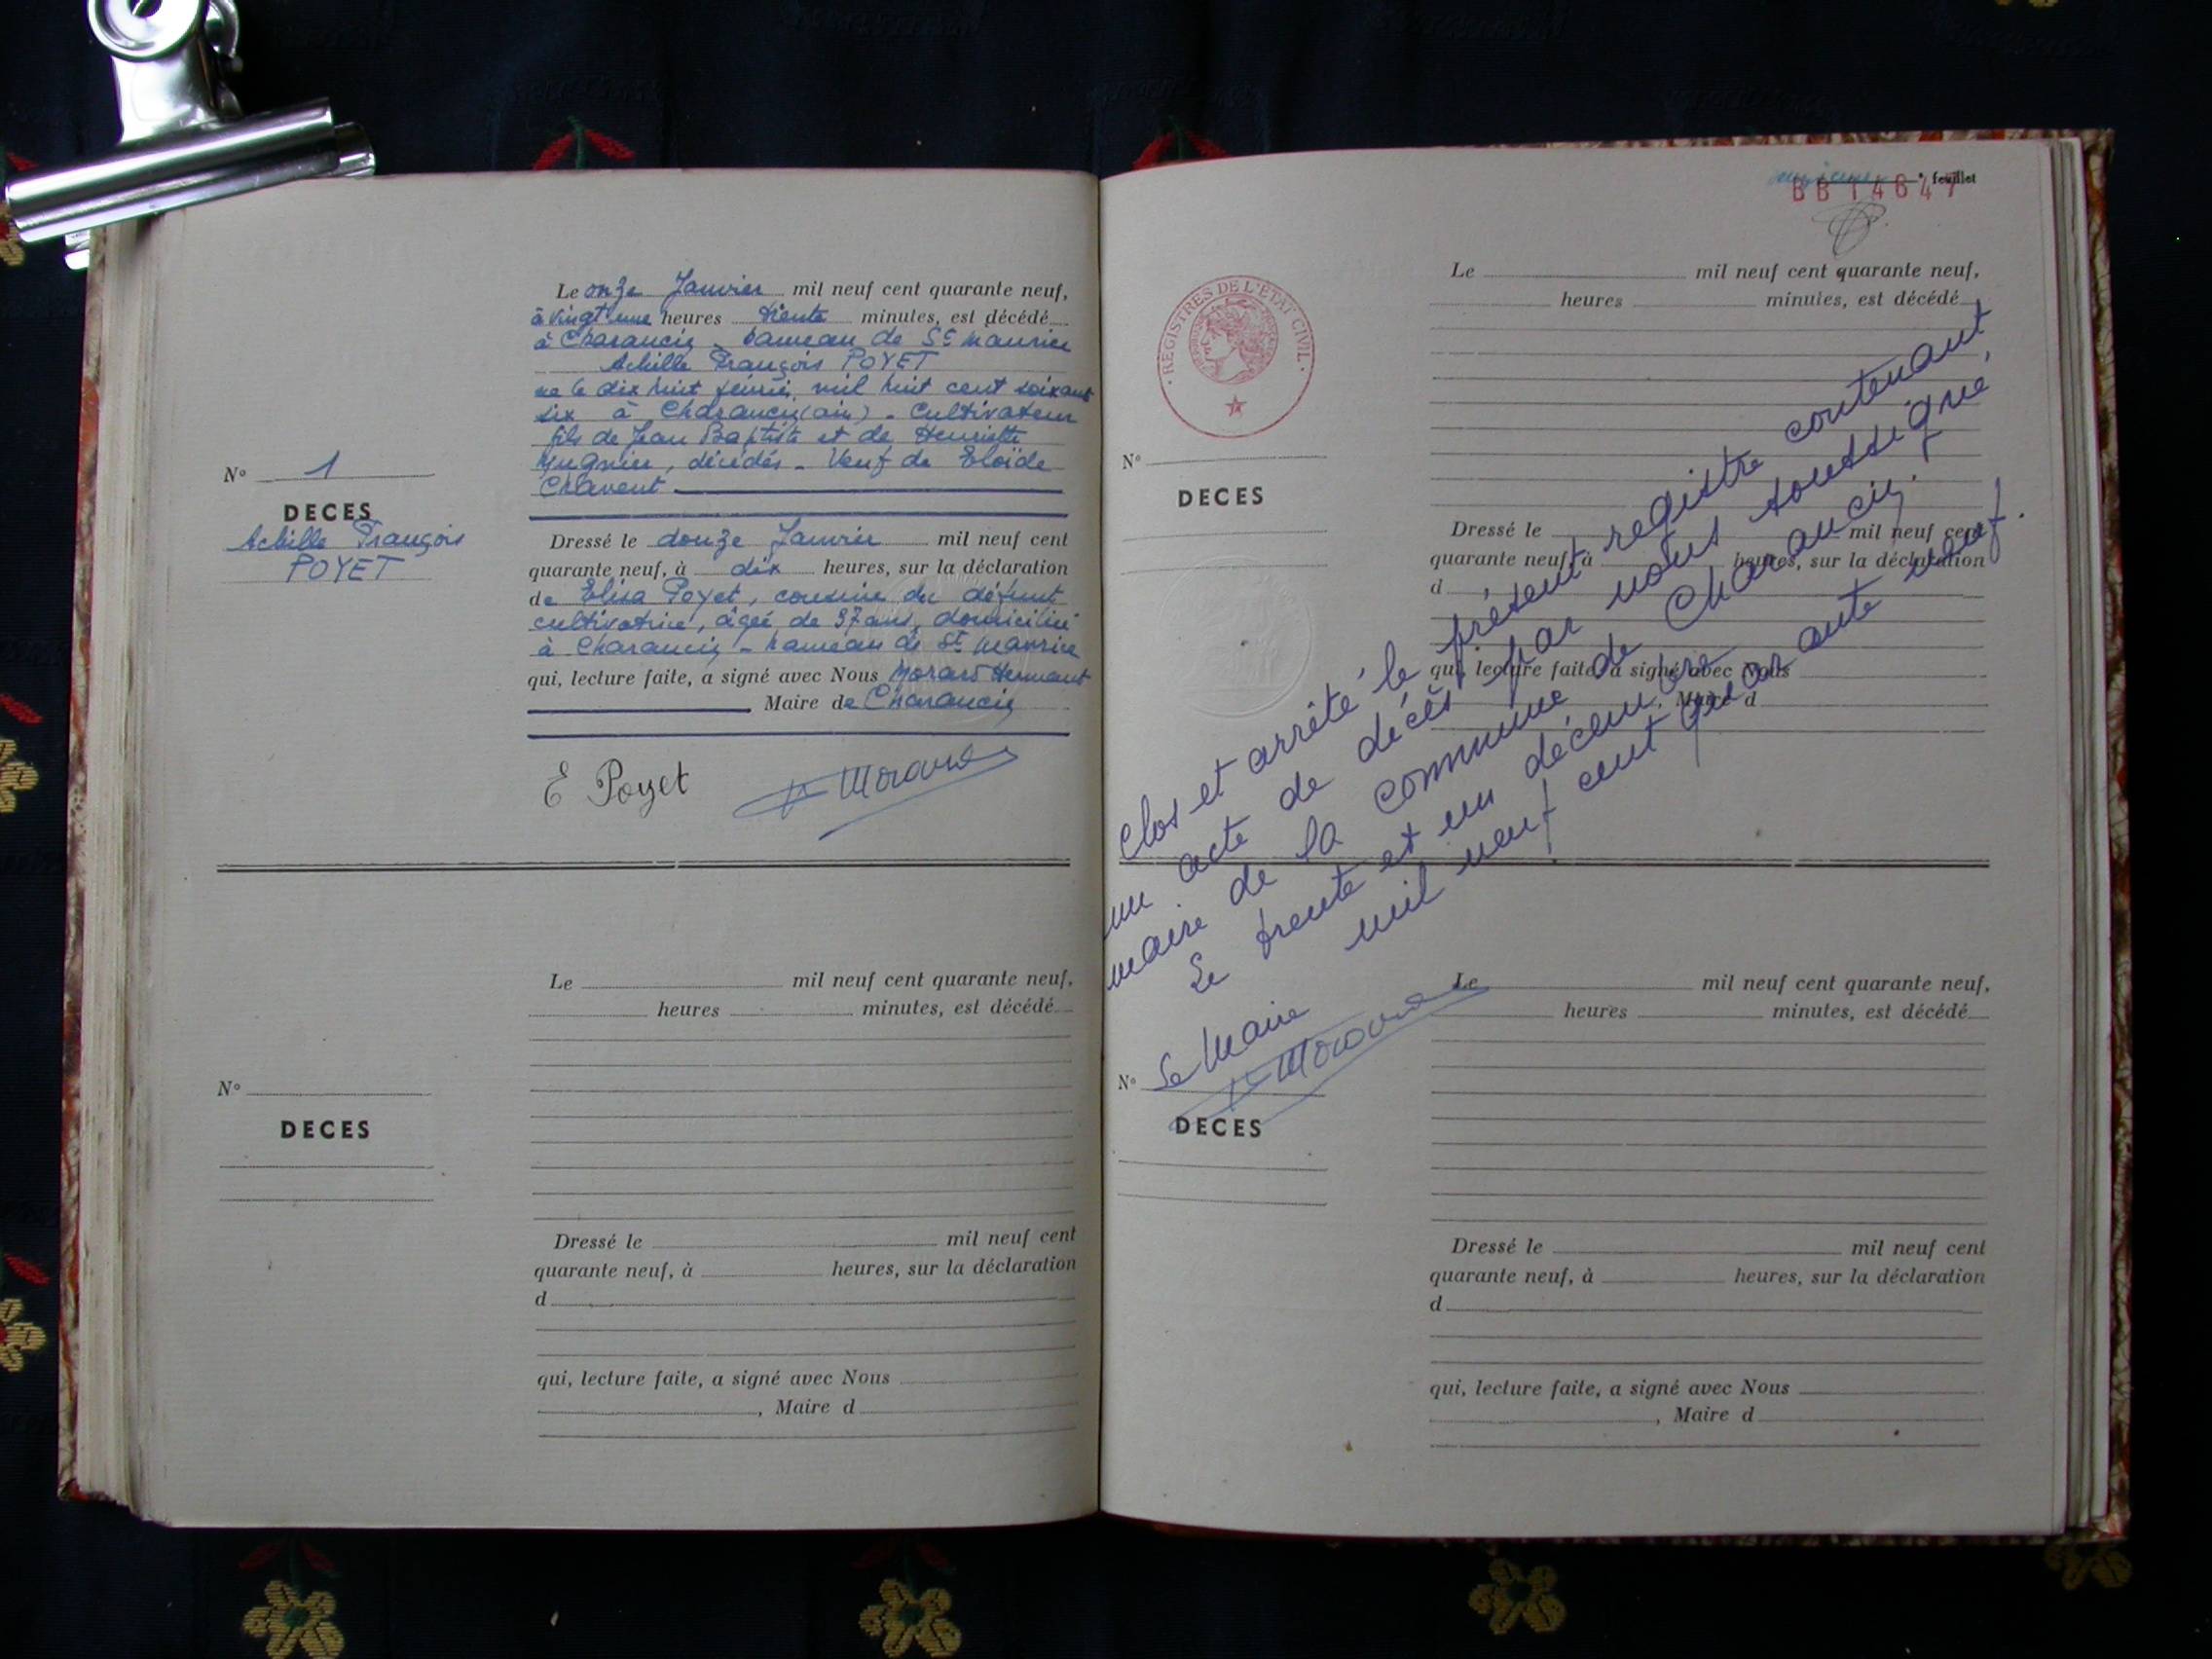 Le onze Janvier mil neuf cent quarante neuf,
à vingt une heures trente minutes, est décédé
à Charancin - hameau de St Maurice
Achille François POYET
né le dix huit février mil huit cent soixante
six à Charancin (ain) - Cultivateur
fils de Jean Baptiste et de Henriette
décédés - Veuf de Eloïde
Chavent
N° 1
DECES
Achille François
POYET
Dressé le douze Janvier mil neuf cent
quarante neuf, à dix heures, sur la déclaration
de Elisa Poyet, cousine du défunt
cultivatrice, âgée de 37 ans, domiciliée
à Charancin - hameau de St Maurice
qui, lecture faite, a signé avec Nous Morard
Maire de Charancin
E Poyet
Morard
Le mil neuf cent quarante neuf,
heures minutes, est décédé
N°
DECES
Dressé le mil neuf cent
quarante neuf, à heures, sur la déclaration
d
qui, lecture faite, a signé avec Nous
, Maire d
feuillet
BB 14647
REGISTRES DE L'ÉTAT CIVIL
Le mil neuf cent quarante neuf,
heures minutes, est décédé
N°
DECES
Dressé le mil neuf cent
quarante neuf, à heures, sur la déclaration
d
qui, lecture faite, a signé avec Nous
, Maire d
Clos et arrêté le présent registre contenant
un acte de décès par nous soussigné,
maire de la commune de Charancin.
Le trente et un décembre
mil neuf cent quarante neuf.
Le Maire
Morard
Le mil neuf cent quarante neuf,
heures minutes, est décédé
N°
DECES
Dressé le mil neuf cent
quarante neuf, à heures, sur la déclaration
d
qui, lecture faite, a signé avec Nous
, Maire d